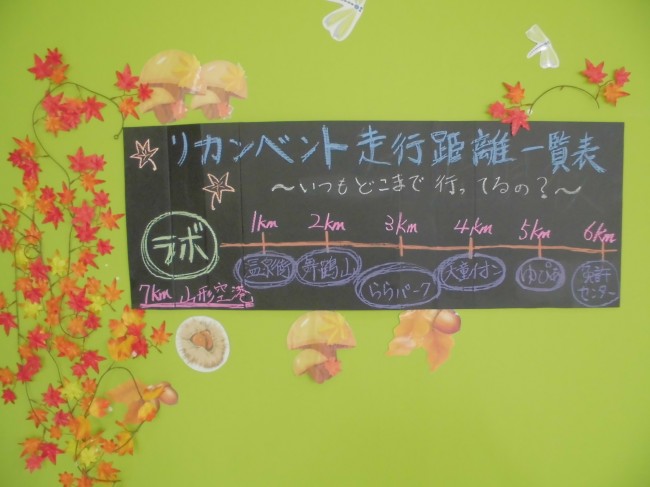 リカンベント走行距離一覧表
～いつもどこまで行ってるの？～
1km 2km 3km 4km 5km 6km
ラボ 温泉街 舞鶴山 ららパーク 天童イオン ゆぴあ 免許センター
7km 山形空港